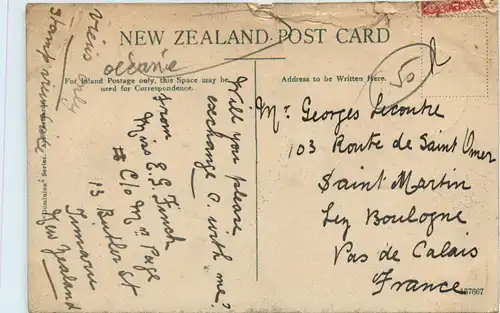 NEW ZEALAND POST CARD
océanie
For Inland Postage only, this Space may be
used for Correspondence.
Address to be Written Here.
Views only
Stamp view side
Will you please
exchange C. with me?
from
Miss E. G. Finch
C/o Mrs Page
13 Butler St
Timaru
New Zealand
Mr. Georges Lecontre
103 Route de Saint Omer
Saint Martin
Lez Boulogne
Pas de Calais
France
137667